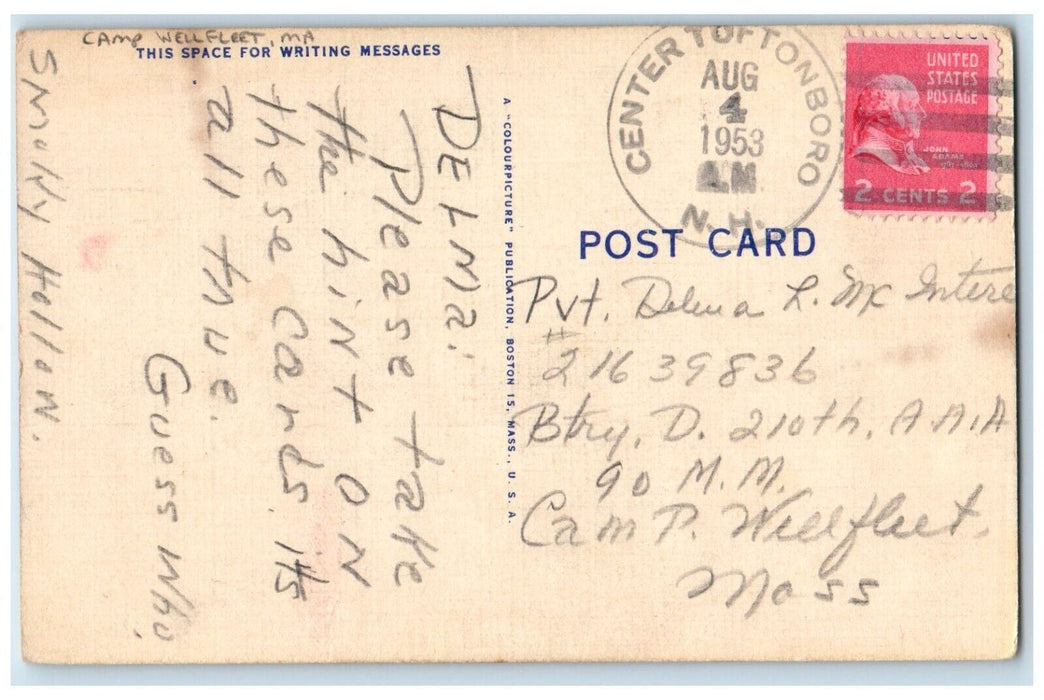 CAMP WELLFLEET, MA
THIS SPACE FOR WRITING MESSAGES
DELMA:
Please take
the hint ON
these cards. it's
all true.
Guess Who.
Smoky Hollow.
A "COLOURPICTURE" PUBLICATION, BOSTON 15, MASS., U. S. A.
CENTER TUFTONBORO
AUG
4
1953
AM
N.H.
UNITED
STATES
POSTAGE
JOHN
ADAMS
2 CENTS 2
POST CARD
Pvt. Delma L. Mc Intere
#
21639836
Btry, D. 210th, A.A.A
90 M.M.
Camp. Wellfleet.
Mass